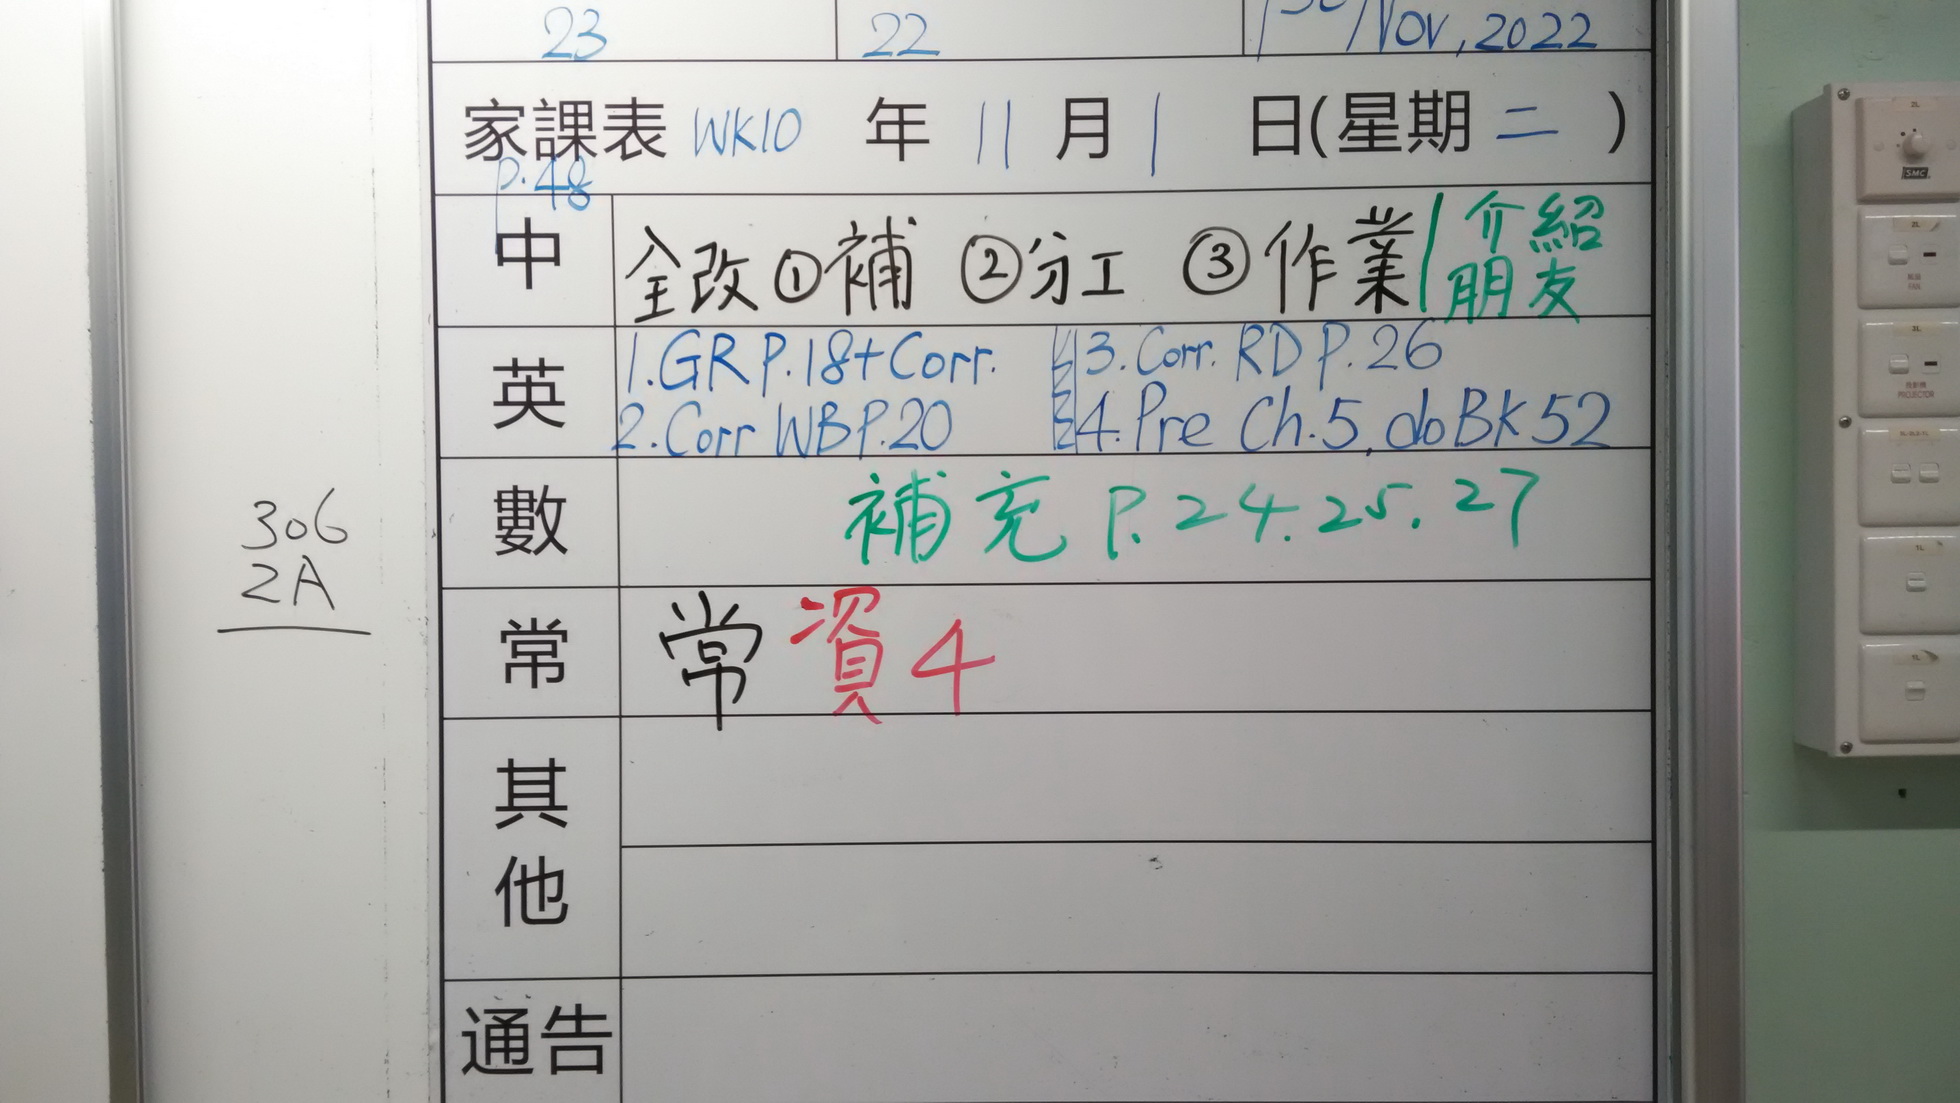 23 22 1st/Nov, 2022
家課表 WK10 年 11 月 1 日(星期 二 )
P.48
中 全改 ①補 ②分工 ③作業/介紹朋友
英 1.GR P.18+Corr. 3.Corr. RD P.26
2.Corr WB P.20 4.Pre Ch.5, do BK 52
數 補充 P.24.25.27
常 常資4
其他
通告
306
2A
SMC
2L
2L
FAN
3L
PROJECTOR
1L
1L